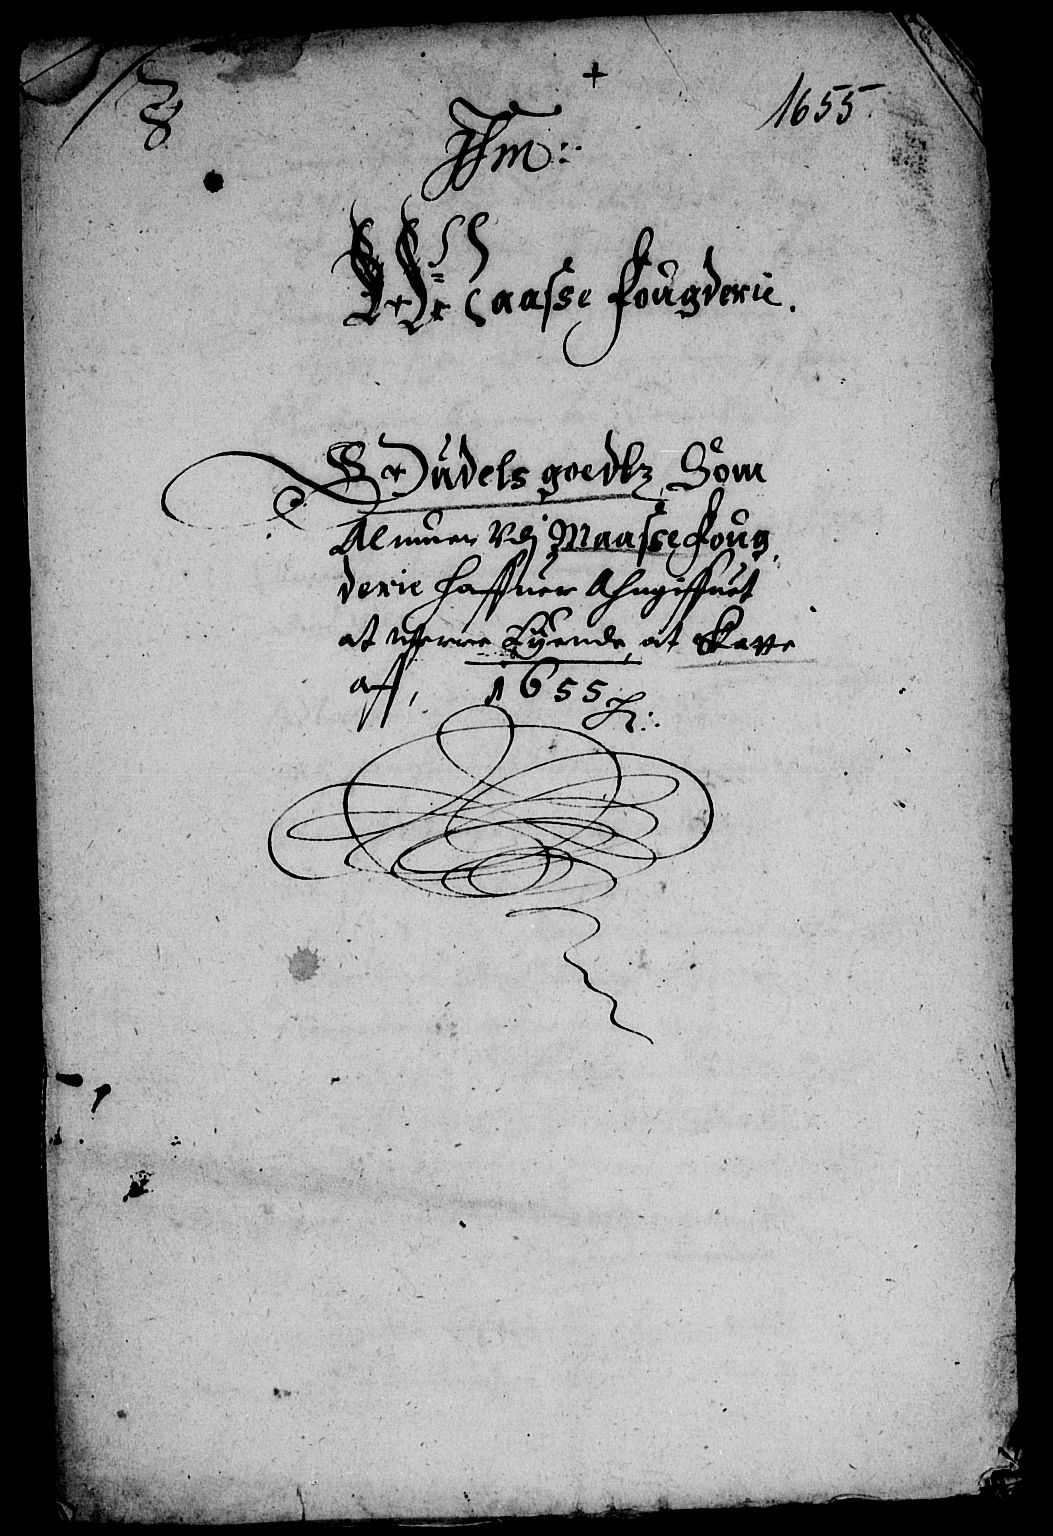 1655
+
Ihm:
Maasse fougderie.
Oudels goedtz Som
Almuen Vdj Maasse foug
derie haffuer Ahngiffuet
at werre Eÿende, at Skatte
aff, 1655